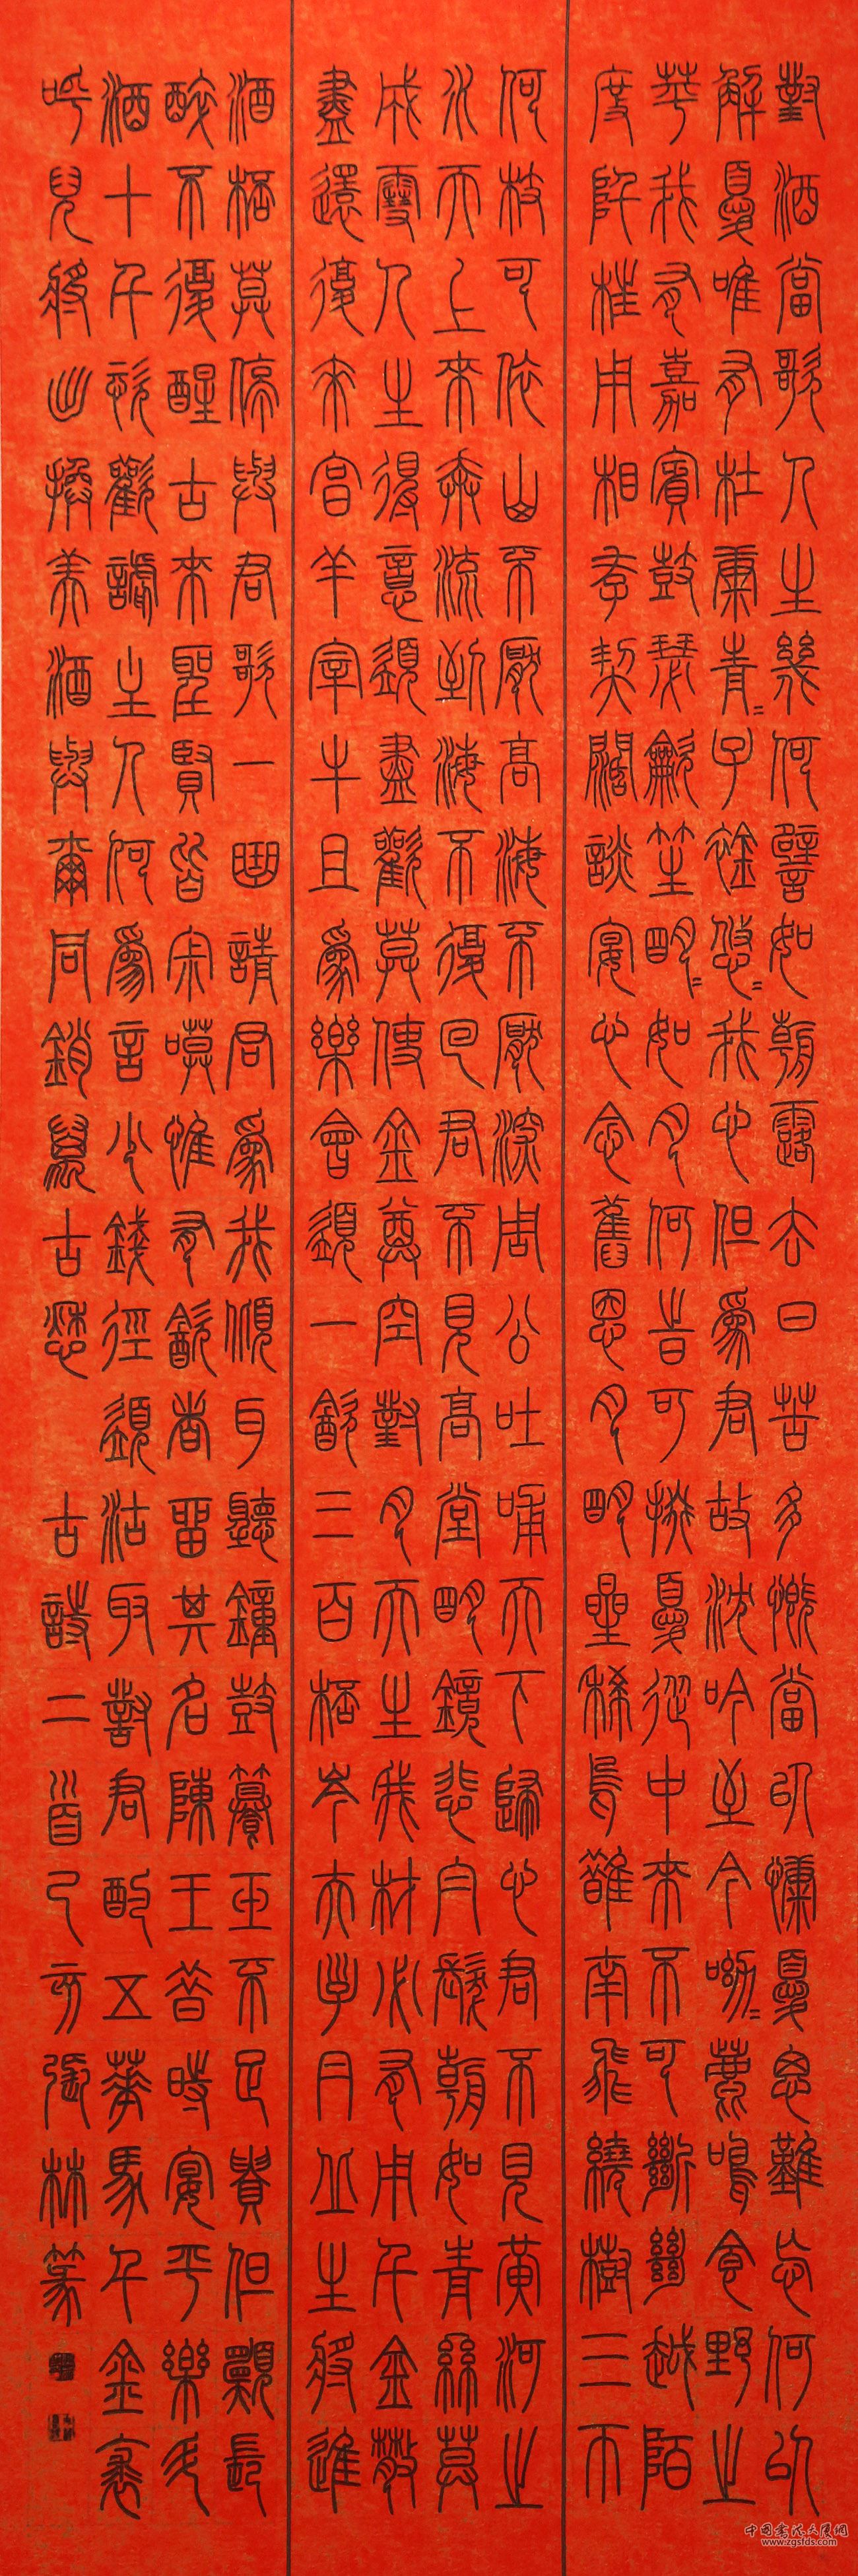 對酒當歌人生幾何譬如朝露去日苦多慨當以慷憂思難忘何以
解憂唯有杜康青=子衿悠=我心但為君故沈吟至今呦=鹿鳴食野之
苹我有嘉賓鼓瑟龢笙明=如月何時可掇憂從中來不可斷絕越陌
度阡枉用相存契闊談宴心念舊恩月明星稀烏鵲南飛繞樹三帀
何枝可依山不厭高海不厭深周公吐哺天下歸心君不見黃河之
水天上來奔流到海不復回君不見高堂明鏡悲白髮朝如青絲莫
成雪人生得意須盡歡莫使金尊空對月天生我材必有用千金散
盡還復來烹羊宰牛且為樂會須一飲三百桮岑夫子丹丘生將進
酒桮莫停與君歌一曲請君為我傾耳聽鐘鼓饌玉不足貴但願長
醉不復醒古來聖賢皆寂嘆惟有飲者留其名陳王昔時宴平樂斗
酒十千恣歡謔主人何為言少錢徑須沽取對君酌五華馬千金裘
呼兒將出換美酒與爾同銷萬古愁
古詩二首己亥張林篆
中国书法支展网
www.zgsfds.com